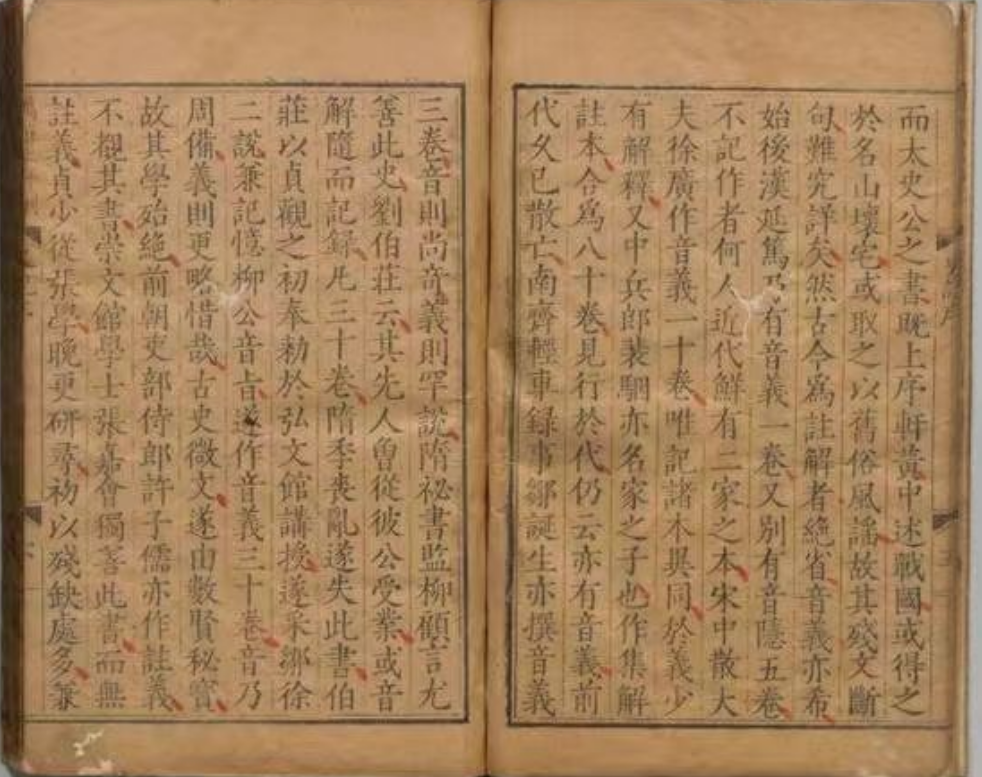 而太史公之書既上序軒黃中述戰國或得之
於名山壞宅或取之以舊俗風謡故其殘文斷
句難究詳矣然古今爲註解者絶省音義亦希
始後漢延篤乃有音義一卷又别有音隱五卷
不記作者何人近代鮮有二家之本宋中散大
夫徐廣作音義一十卷唯記諸本異同於義少
有解釋又中兵郎裴駰亦名家之子也作集解
註本合爲八十卷見行於代仍云亦有音義前
代久已散亡南齊輕車録事鄒誕生亦撰音義
三卷音則尚奇義則罕說隋祕書監柳顧言尤
善此史劉伯莊云其先人曾從彼公受業或音
解隨而記録凡三十卷隋季喪亂遂失此書伯
莊以貞觀之初奉勑於弘文館講授遂采鄒徐
二說兼記憶柳公音旨遂作音義三十卷音乃
周備義則更略惜哉古史微文遂由數賢秘寳
故其學殆絶前朝吏部侍郎許子儒亦作註義
不覩其書崇文館學士張嘉會獨善此書而無
註義貞少從張學晚更研尋初以殘缺處多兼